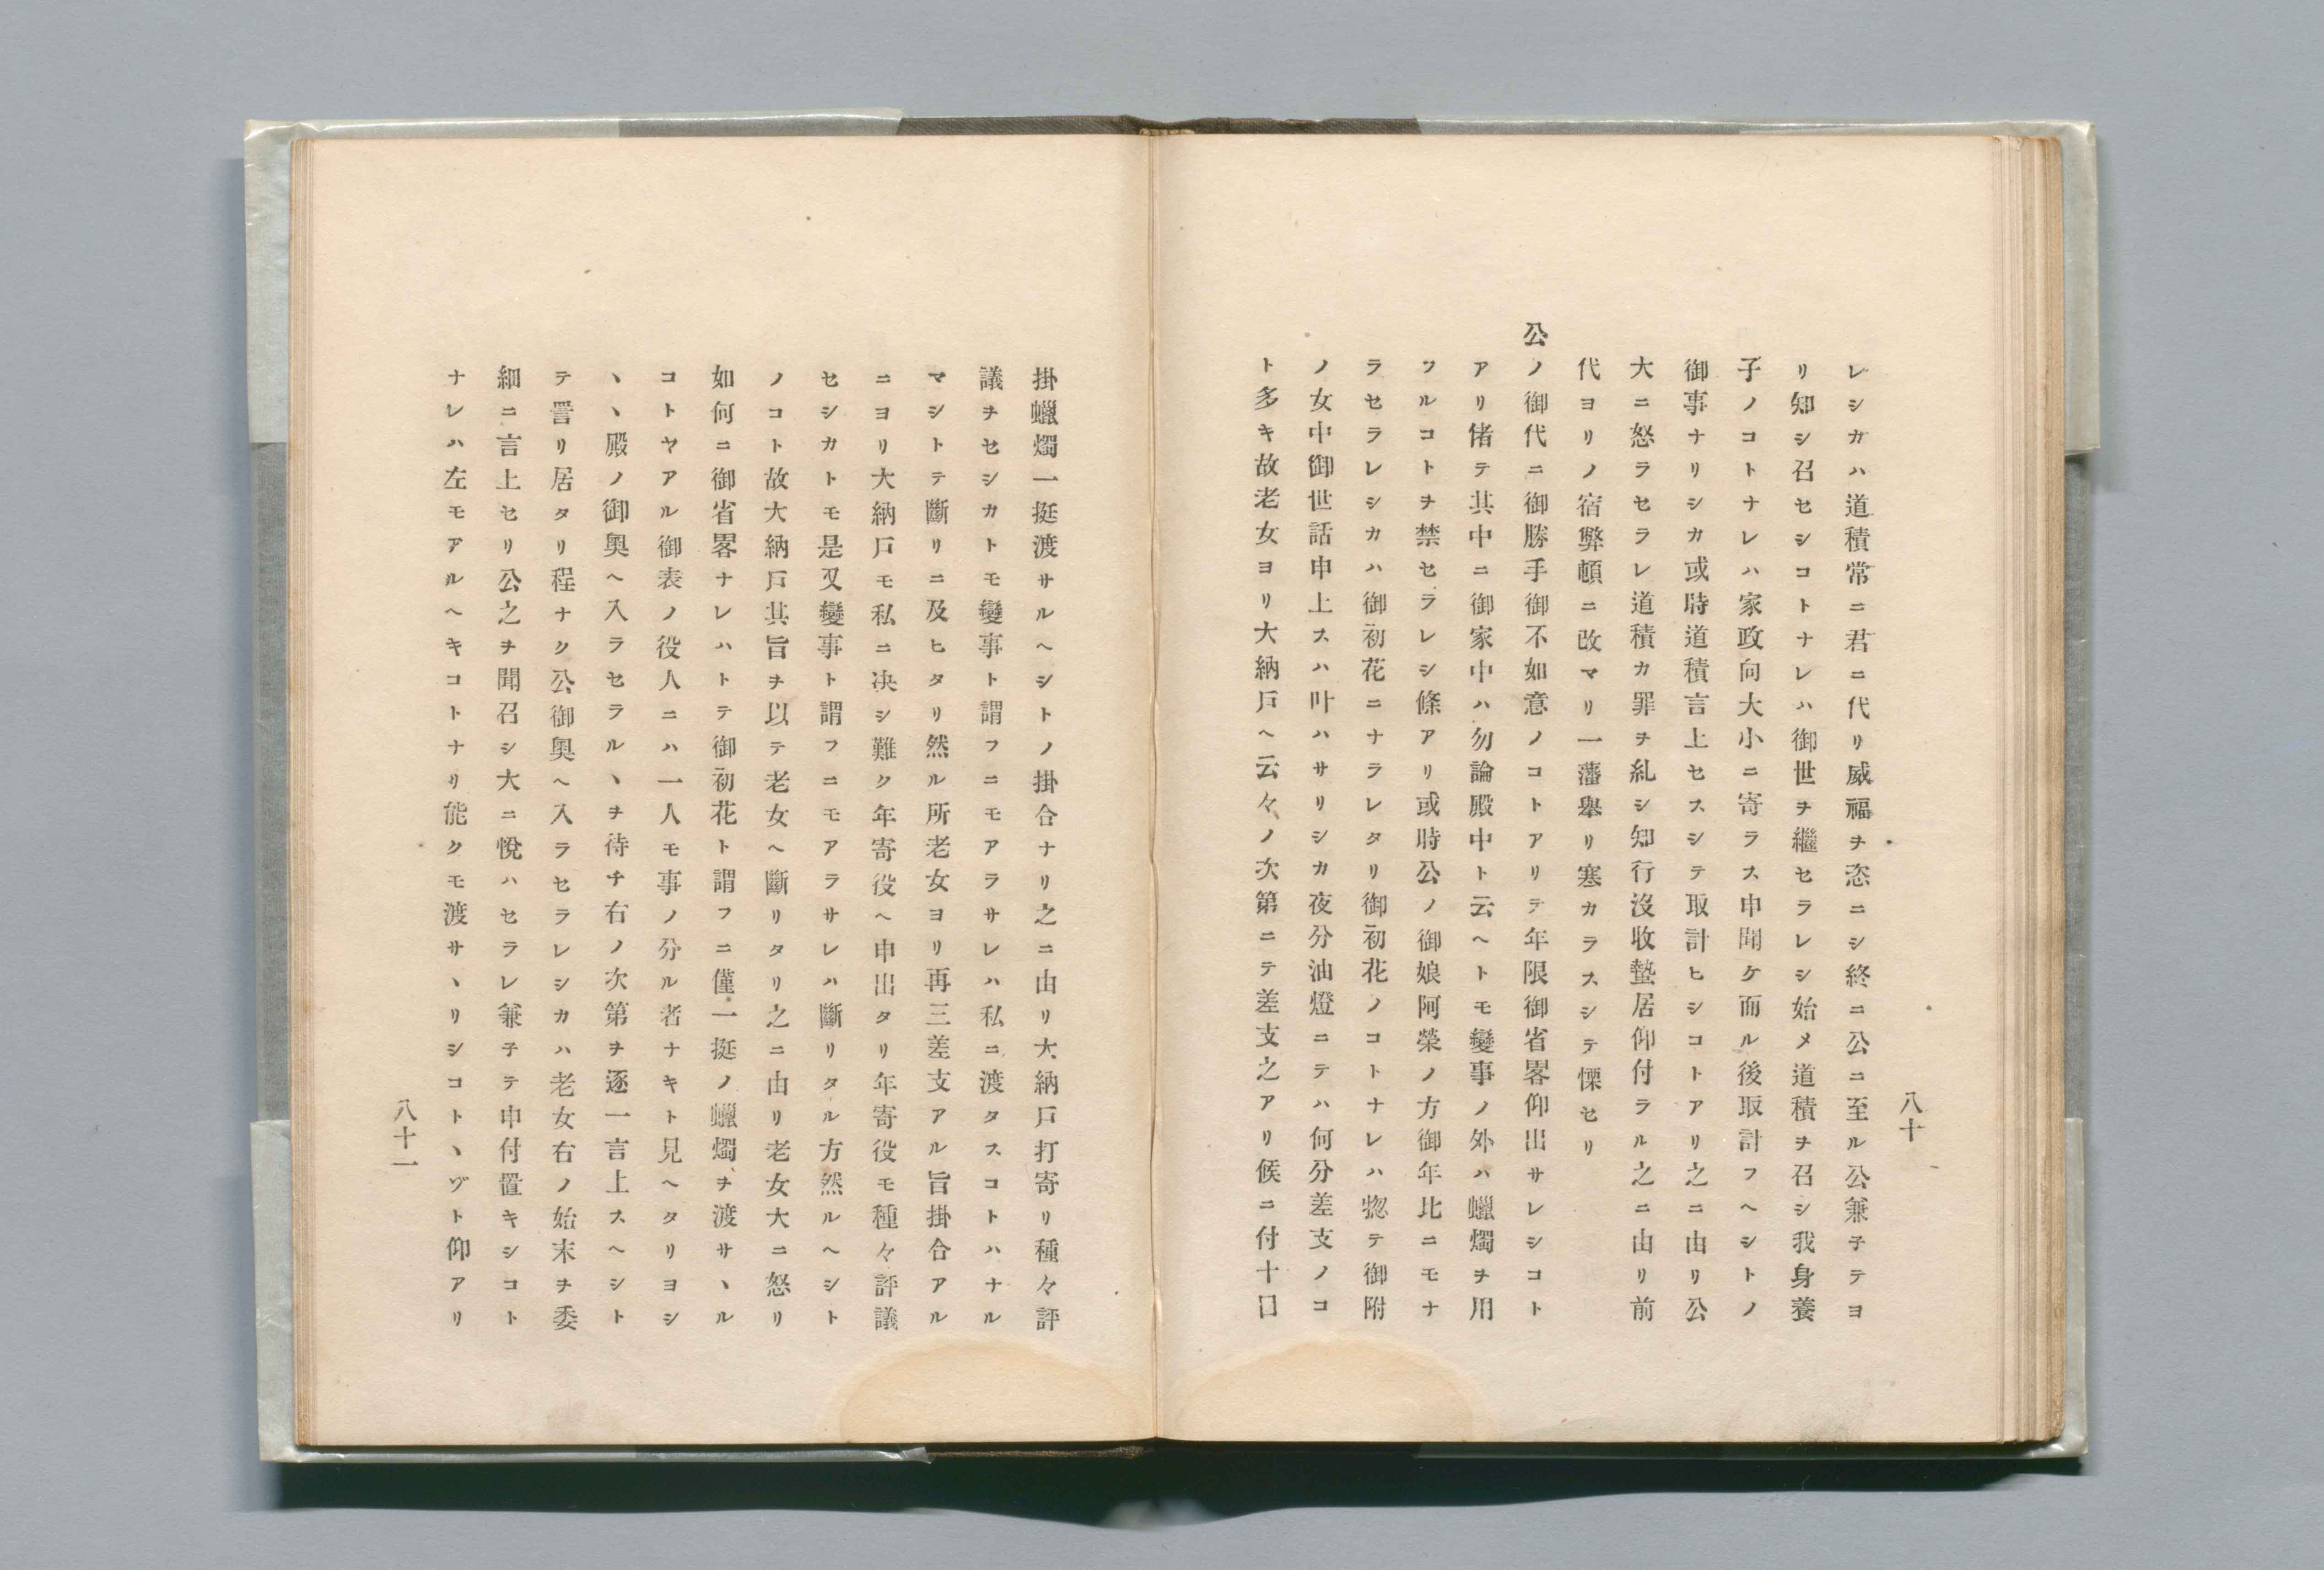 八十
レシカハ道積常ニ君ニ代リ威福ヲ恣ニシ終ニ公ニ至ル公兼子テヨ
リ知シ召セシコトナレハ御世ヲ繼セラレシ始メ道積ヲ召シ我身養
子ノコトナレハ家政向大小ニ寄ラス申聞ケ而ル後取計フヘシトノ
御事ナリシカ或時道積言上セスシテ取計ヒシコトアリ之ニ由リ公
大ニ怒ラセラレ道積カ罪ヲ糺シ知行沒收蟄居仰付ラル之ニ由リ前
代ヨリノ宿弊頓ニ改マリ一藩擧リ寒カラスシテ慄セリ
公ノ御代ニ御勝手御不如意ノコトアリテ年限御省畧仰出サレシコト
アリ偖テ其中ニ御家中ハ勿論殿中ト云ヘトモ變事ノ外ハ蠟燭ヲ用
フルコトヲ禁セラレシ條アリ或時公ノ御娘阿榮ノ方御年比ニモナ
ラセラレシカハ御初花ニナラレタリ御初花ノコトナレハ惣テ御附
ノ女中御世話申上スハ叶ハサリシカ夜分油燈ニテハ何分差支ノコ
ト多キ故老女ヨリ大納戸ヘ云々ノ次第ニテ差支之アリ候ニ付十口
掛蠟燭一挺渡サルヘシトノ掛合ナリ之ニ由リ大納戸打寄リ種々評
議ヲセシカトモ變事ト謂フニモアラサレハ私ニ渡タスコトハナル
マシトテ斷リニ及ヒタリ然ル所老女ヨリ再三差支アル旨掛合アル
ニヨリ大納戸モ私ニ决シ難ク年寄役ヘ申出タリ年寄役モ種々評議
セシカトモ是又變事ト謂フニモアラサレハ斷リタル方然ルヘシト
ノコト故大納戸其旨ヲ以テ老女ヘ斷リタリ之ニ由リ老女大ニ怒リ
如何ニ御省畧ナレハトテ御初花ト謂フニ僅一挺ノ蠟燭ヲ渡サヽル
コトヤアル御表ノ役人ニハ一人モ事ノ分ル者ナキト見ヘタリヨシ
ヽヽ殿ノ御奧ヘ入ラセラルヽヲ待チ右ノ次第ヲ逐一言上スヘシト
テ詈リ居タリ程ナク公御奧ヘ入ラセラレシカハ老女右ノ始末ヲ委
細ニ言上セリ公之ヲ聞召シ大ニ悅ハセラレ兼子テ申付置キシコト
ナレハ左モアルヘキコトナリ能クモ渡サヽリシコトヽゾト仰アリ
八十一